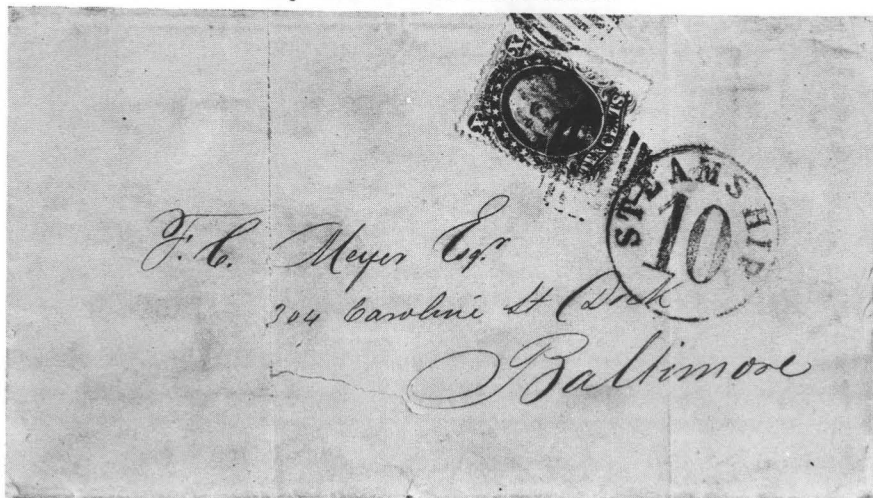 TEN CENTS
STEAMSHIP
10
F. C. Meyer Esqr
304 Caroline St Dock
Baltimore